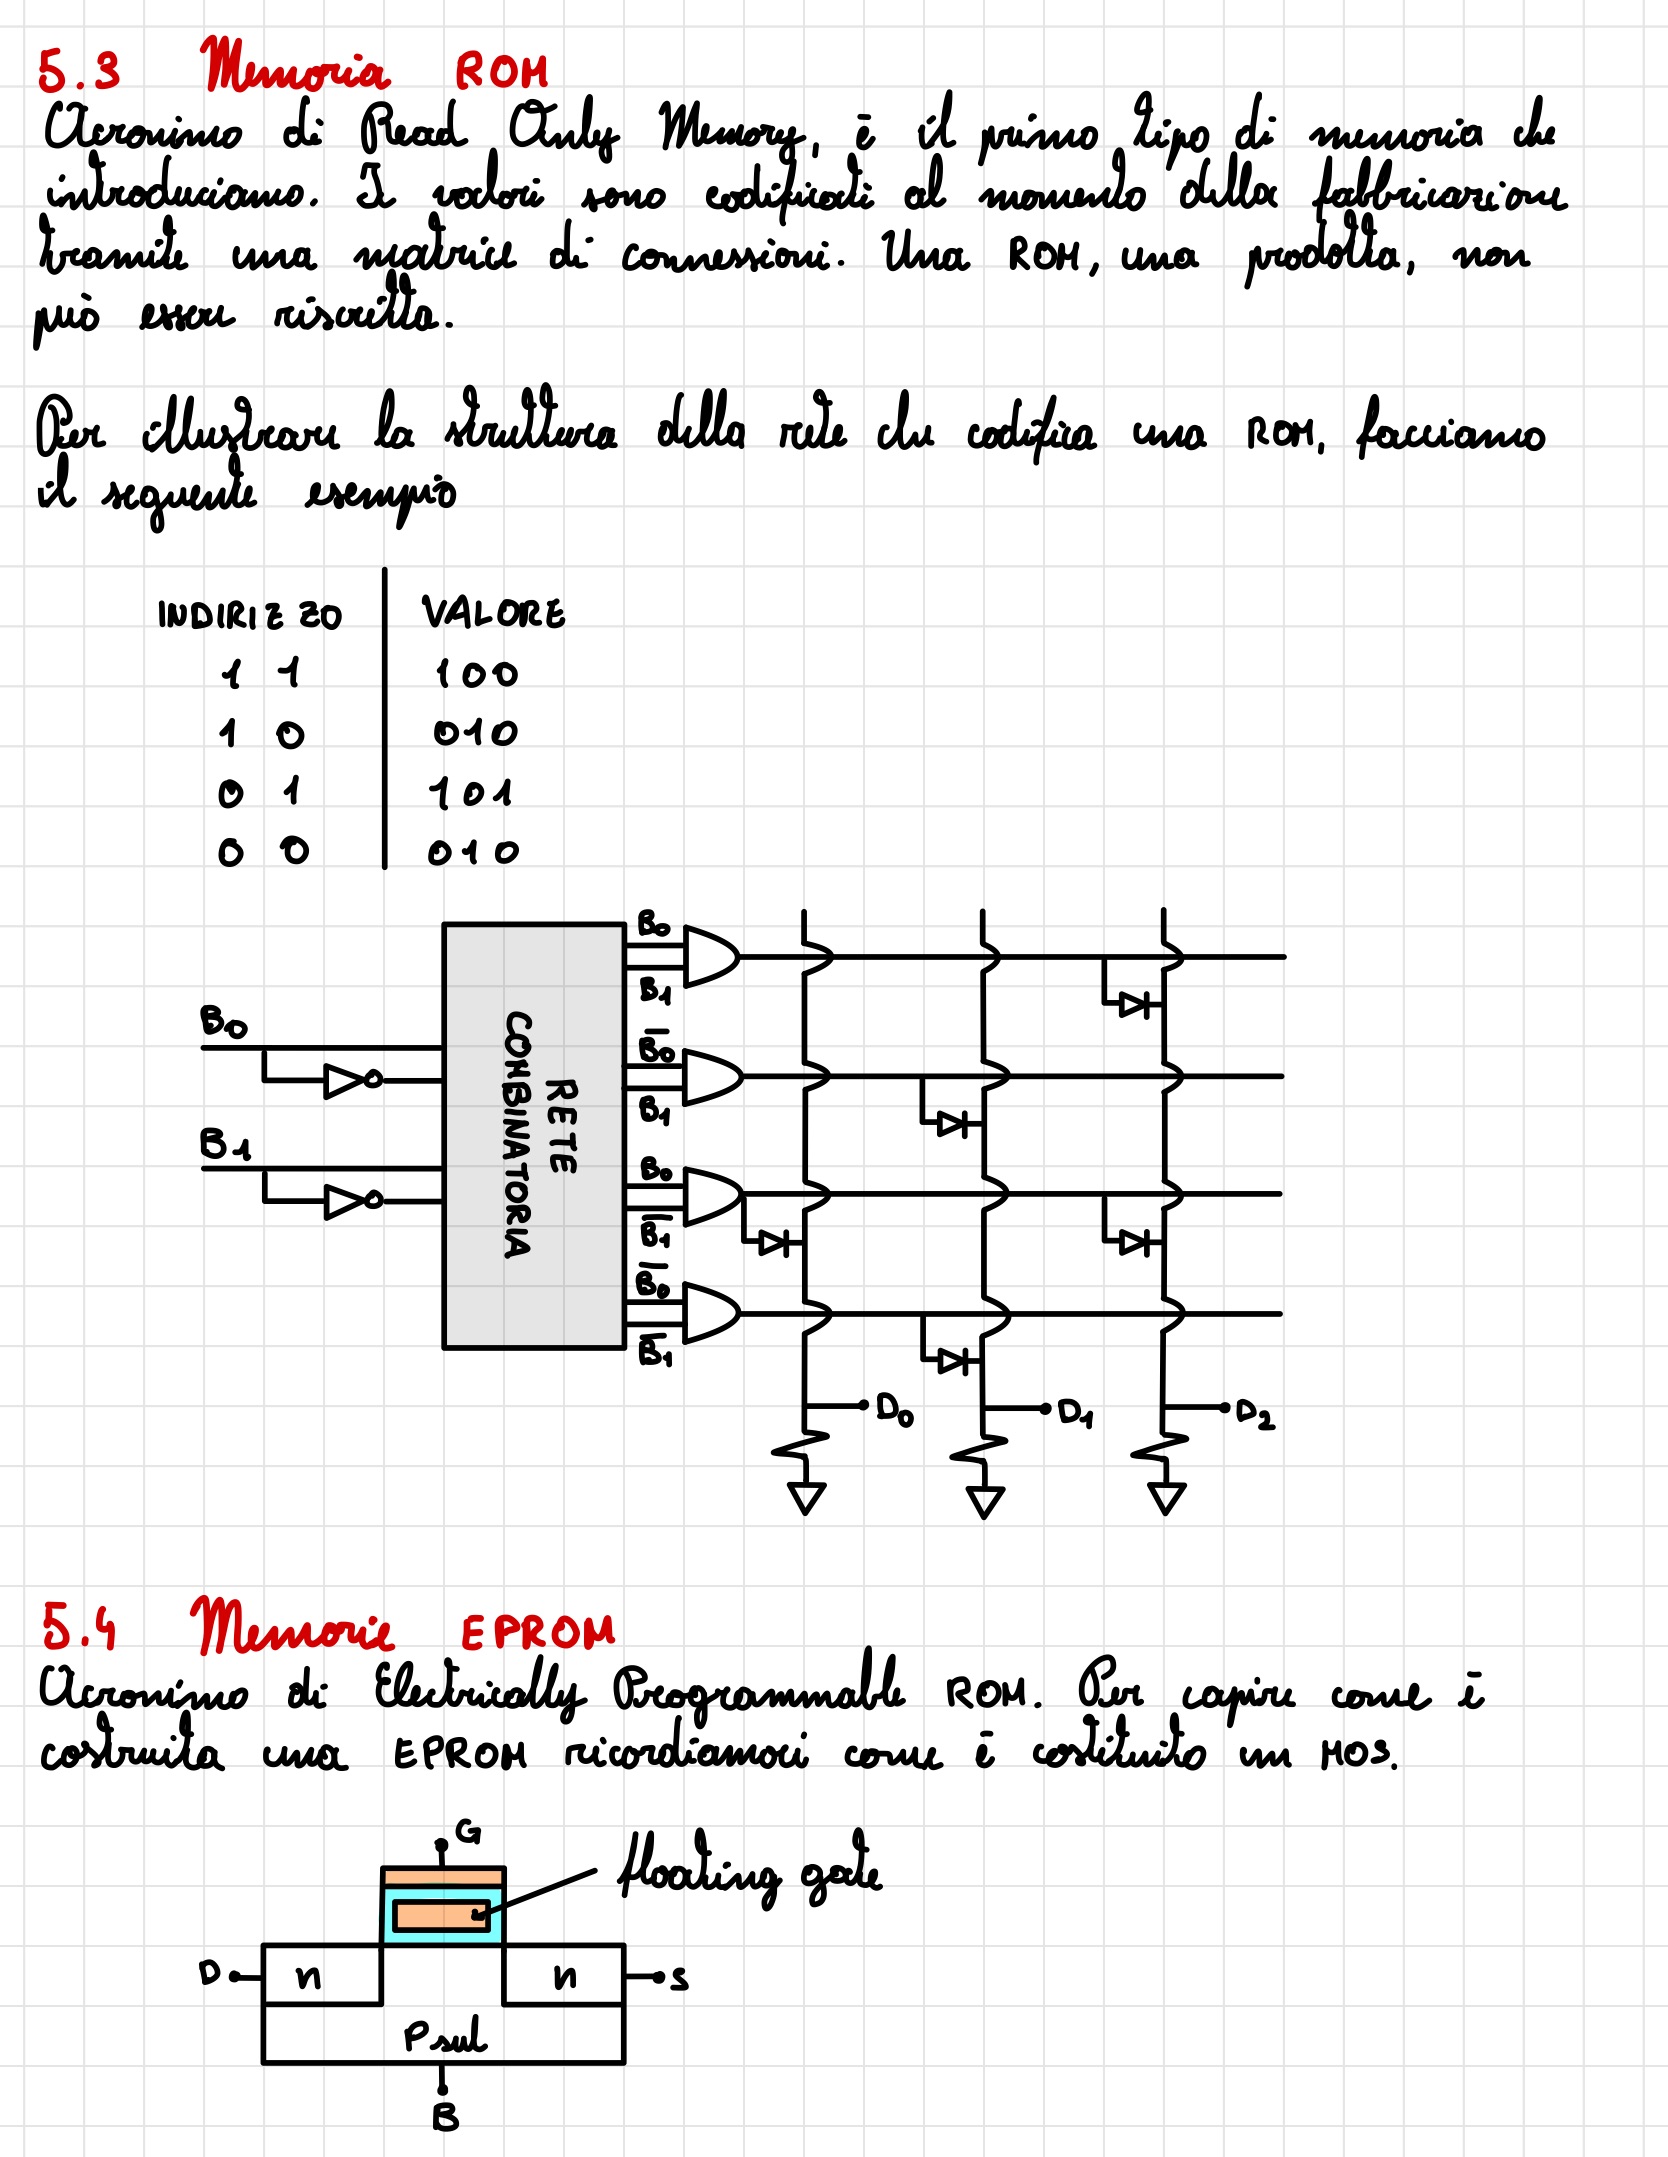 5.3 Memoria ROM
Acronimo di Read Only Memory, è il primo tipo di memoria che
introduciamo. I valori sono codificati al momento della fabbricazione
tramite una matrice di connessioni. Una ROM, una prodotta, non
può essere riscritta.
Per illustrare la struttura della rete che codifica una ROM, facciamo
il seguente esempio
INDIRIZZO VALORE
1 1 100
1 0 010
0 1 101
0 0 010
B0
B1
B0
B1
RETE
COMBINATORIA
B̅0
B1
B0
B̅1
B̅0
B̅1
D0 D1 D2
5.4 Memorie EPROM
Acronimo di Electrically Programmable ROM. Per capire come è
costruita una EPROM ricordiamoci come è costituito un MOS.
G
floating gate
D n n S
Psub
B